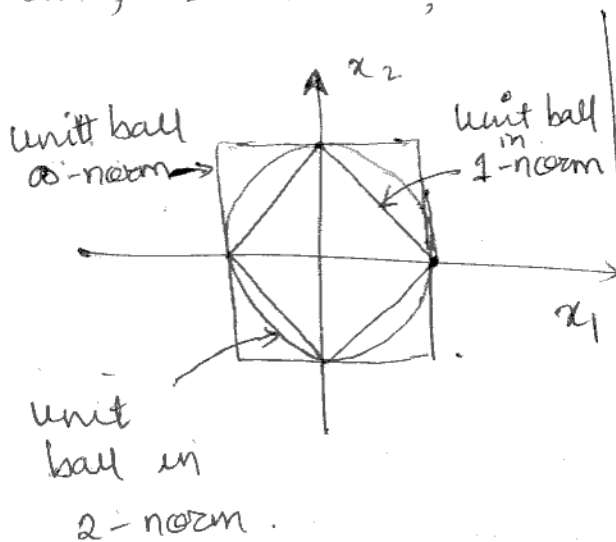 x2
unitt ball
∞-norm
unit ball
in
1-norm
x1
unit
ball in
2-norm.